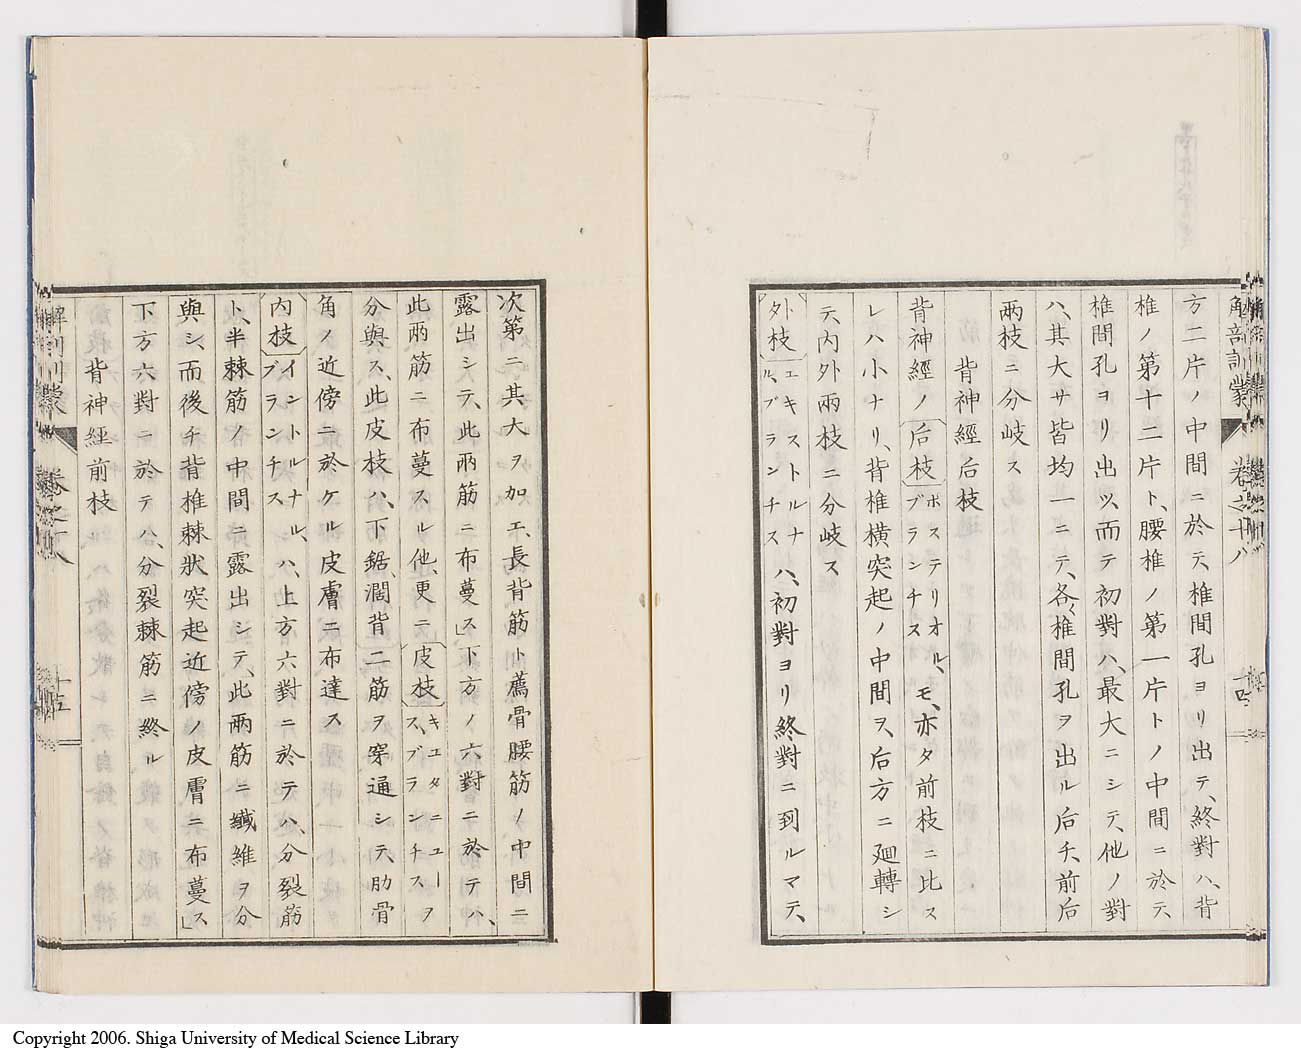 方二片ノ中間ニ於テ、椎間孔ヨリ出テ、終對ハ、背
椎ノ第十二片ト、腰椎ノ第一片トノ中間ニ於テ、
椎間孔ヨリ出ツ、而テ初對ハ、最大ニシテ、他ノ對
ハ、其大サ皆均一ニテ、各〻椎間孔ヲ出ル后チ、前后
兩枝ニ分岐ス
背神經后枝
背神經ノ后枝ポステリオル、ブランチスモ、亦タ前枝ニ比ス
レハ小ナリ、背椎横突起ノ中間ヲ、后方ニ廻轉シ
テ、内外兩枝ニ分岐ス
外枝エキストルナル、ブランチスハ、初對ヨリ終對ニ到ルマテ、
次第ニ其大ヲ加エ、長背筋ト薦骨腰筋ノ中間ニ
露出シテ、此兩筋ニ布蔓ス」下方ノ六對ニ於テハ、
此兩筋ニ布蔓スル他、更ニ皮枝キユタニユース、ブランチスヲ
分與ス、此皮枝ハ、下鋸、濶背二筋ヲ穿通シテ、肋骨
角ノ近傍ニ於ケル皮膚ニ布達ス
内枝イントルナル、ブランチスハ、上方六對ニ於テハ、分裂筋
ト、半棘筋ノ中間ニ露出シテ、此兩筋ニ纎維ヲ分
與シ、而後チ背椎棘狀突起近傍ノ皮膚ニ布蔓ス」
下方六對ニ於テハ、分裂棘筋ニ終ル
背神經前枝
Copyright 2006. Shiga University of Medical Science Library